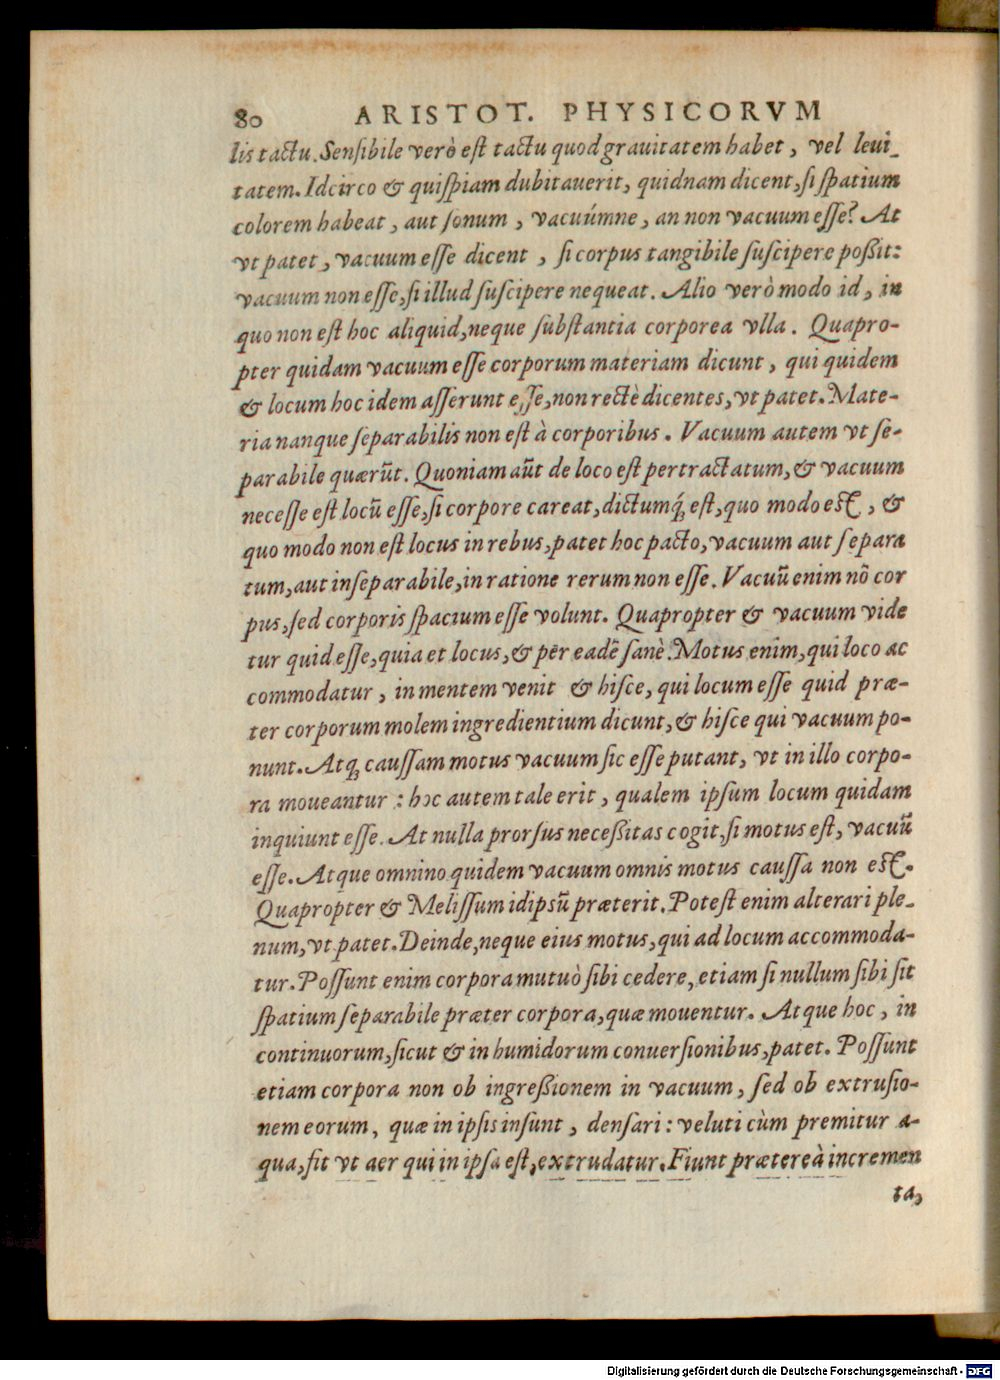 80 ARISTOT. PHYSICORVM
lis tactu. Senſibile verò eſt tactu quod grauitatem habet, vel leui_
tatem. Idcirco & quiſpiam dubitauerit, quidnam dicent, ſi ſpatium
colorem habeat, aut ſonum, vacuúmne, an non vacuum eſſe? At
vt patet, vacuum eſſe dicent, ſi corpus tangibile ſuſcipere poßit:
vacuum non eſſe, ſi illud ſuſcipere nequeat. Alio verò modo id, in
quo non eſt hoc aliquid, neque ſubſtantia corporea vlla. Quapro-
pter quidam vacuum eſſe corporum materiam dicunt, qui quidem
& locum hoc idem aſſerunt eſſe, non rectè dicentes, vt patet. Mate-
ria nanque ſeparabilis non eſt à corporibus. Vacuum autem vt ſe-
parabile quærūt. Quoniam aūt de loco eſt pertractatum, & vacuum
neceſſe eſt locū eſſe, ſi corpore careat, dictumq́; eſt, quo modo eſt, &
quo modo non eſt locus in rebus, patet hoc pacto, vacuum aut ſepara
tum, aut inſeparabile, in ratione rerum non eſſe. Vacuū enim nō cor
pus, ſed corporis ſpacium eſſe volunt. Quapropter & vacuum vide
tur quid eſſe, quia et locus, & per eadē ſanè. Motus enim, qui loco ac
commodatur, in mentem venit & hiſce, qui locum eſſe quid præ-
ter corporum molem ingredientium dicunt, & hiſce qui vacuum po-
nunt. Atq; cauſſam motus vacuum ſic eſſe putant, vt in illo corpo-
ra moueantur: hoc autem tale erit, qualem ipſum locum quidam
inquiunt eſſe. At nulla prorſus neceßitas cogit, ſi motus eſt, vacuū
eſſe. Atque omnino quidem vacuum omnis motus cauſſa non eſt.
Quapropter & Meliſſum idipſū præterit. Poteſt enim alterari ple_
num, vt patet. Deinde, neque eius motus, qui ad locum accommoda-
tur. Poſſunt enim corpora mutuò ſibi cedere, etiam ſi nullum ſibi ſit
ſpatium ſeparabile præter corpora, quæ mouentur. Atque hoc, in
continuorum, ſicut & in humidorum conuerſionibus, patet. Poſſunt
etiam corpora non ob ingreßionem in vacuum, ſed ob extruſio-
nem eorum, quæ in ipſis inſunt, denſari: veluti cùm premitur a-
qua, fit vt aer qui in ipſa eſt, extrudatur. Fiunt prætereà incremen
ta,
Digitalisierung gefördert durch die Deutsche Forschungsgemeinschaft - DFG